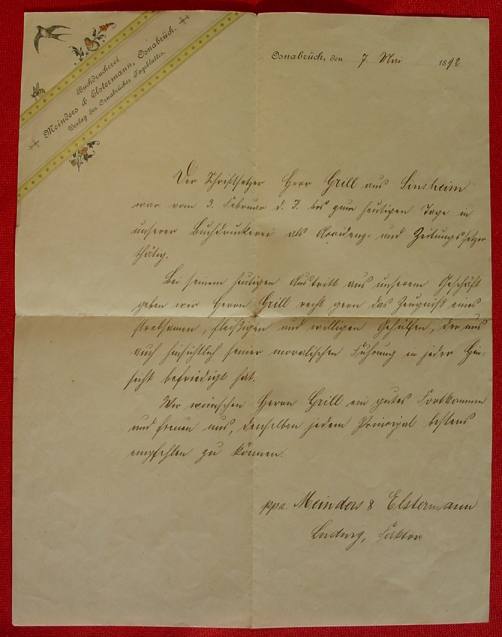 Buchdruckerei
Meinders & Elstermann, Osnabrück.
Verlag des Osnabrücker Tageblattes.
Osnabrück, den 7. Mai 1892
Der Schriftsetzer Herr Grill aus Sinsheim
war vom 3. Februar d. J. bis zum heutigen Tage in
unserer Buchdruckerei als Accidenz- und Zeitungssetzer
thätig.
Bei seinem heutigen Austritt aus unserem Geschäft
geben wir Herrn Grill recht gern das Zeugniß eines
strebsamen, fleißigen und willigen Gehülfen, der uns
auch hinsichtlich seiner moralischen Führung in jeder Hin-
sicht befriedigt hat.
Wir wünschen Herrn Grill ein gutes Fortkommen
und freuen uns, denselben jedem Prinzipal bestens
empfehlen zu können.
ppa. Meinders & Elstermann
Ludwig, Faktor